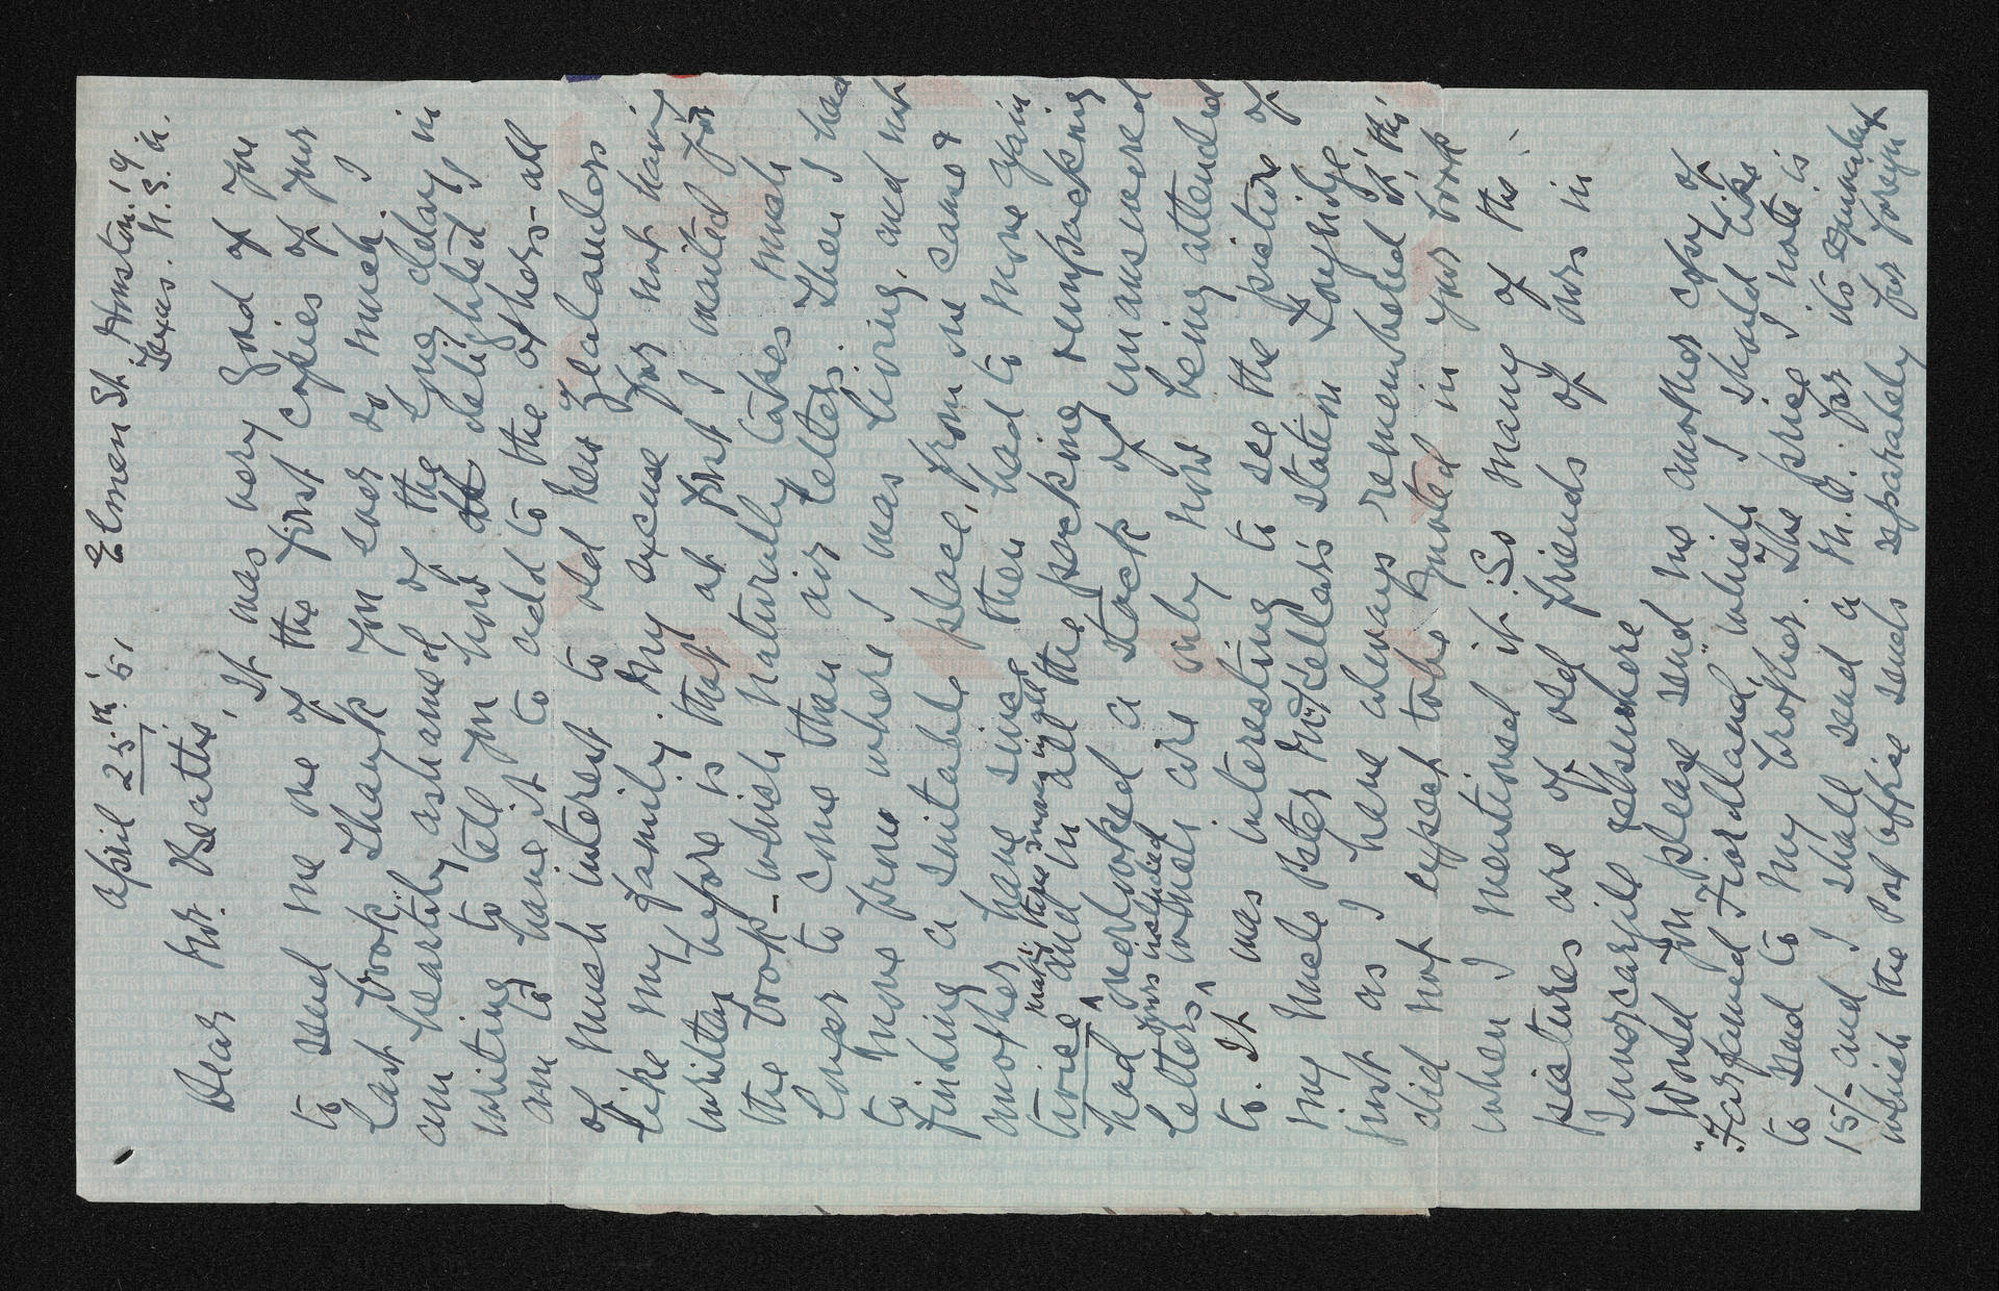 April 25th '51 Elmen St. Houston. 19
Texas. U.S.A.
Dear Mr. Beattie,
It was very good of you
to send me one of the first copies of your
last book. Thank you ever so much. I
am heartily ashamed of the long delay in
writing to tell you how delighted I
am to have it to add to the others - all
of much interest to old New Zealanders
like my family. My excuse for not having
written before is that at first I waited for
the book - which naturally takes much
longer to come than air letters. Then I had
to move from where I was living, and not
finding a suitable place, from one came &
another have since then had to move again
twice making three moves in all
and in all the packing & unpacking
had overlooked a stack of unanswered
letters yours included which are only now being attended
to. It was interesting to see the picture of
my Uncle Peter McKellar's station Longridge
just as I have always remembered it, tho'
did not expect to be quoted in your book
when I mentioned it. So many of the
pictures are of old friends of ours in
Invercargill & elsewhere
Would you please send me another copy of
"Far famed Fiordland", which I should like
to send to my brother. The price I note is
15/- and I shall send a M.O. for its equivalent
which the Post Office sends separately for foreign